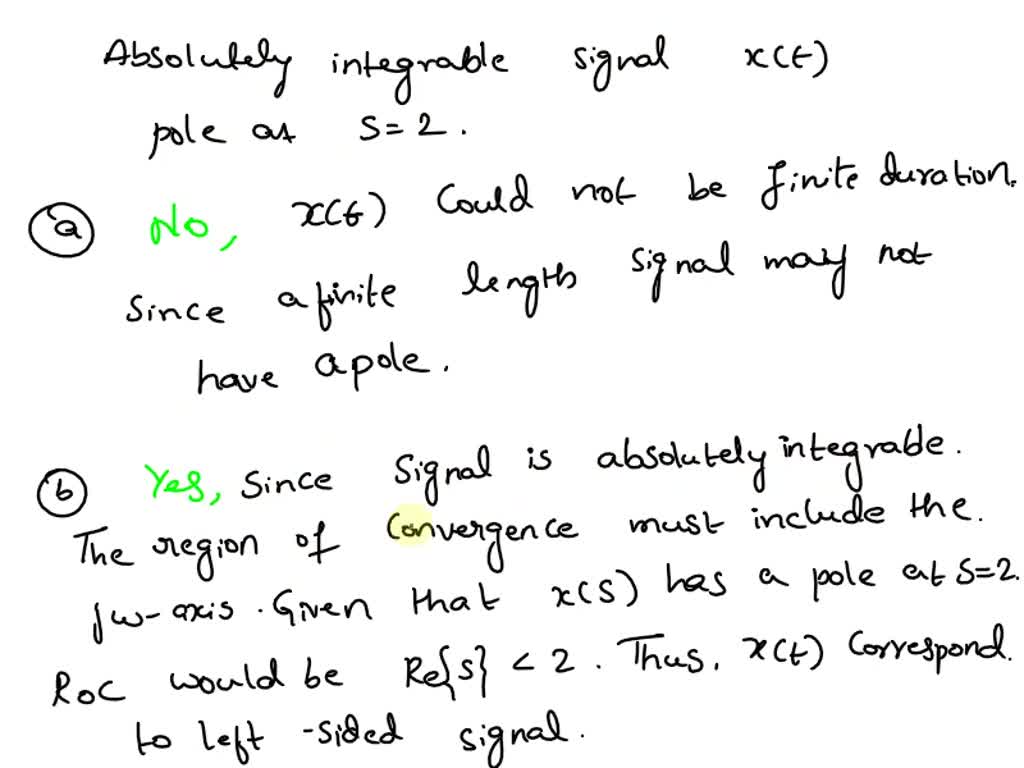 Absolutely integrable signal x(t)
pole at S=2.
(a) No, x(t) Could not be finite duration.
Since a finite length signal may not
have a pole.
(b) Yes, Since Signal is absolutely integrable.
The region of Convergence must include the.
jw-axis. Given that x(S) has a pole at S=2.
RoC would be Re{S} < 2. Thus, x(t) Correspond.
to left-sided signal.